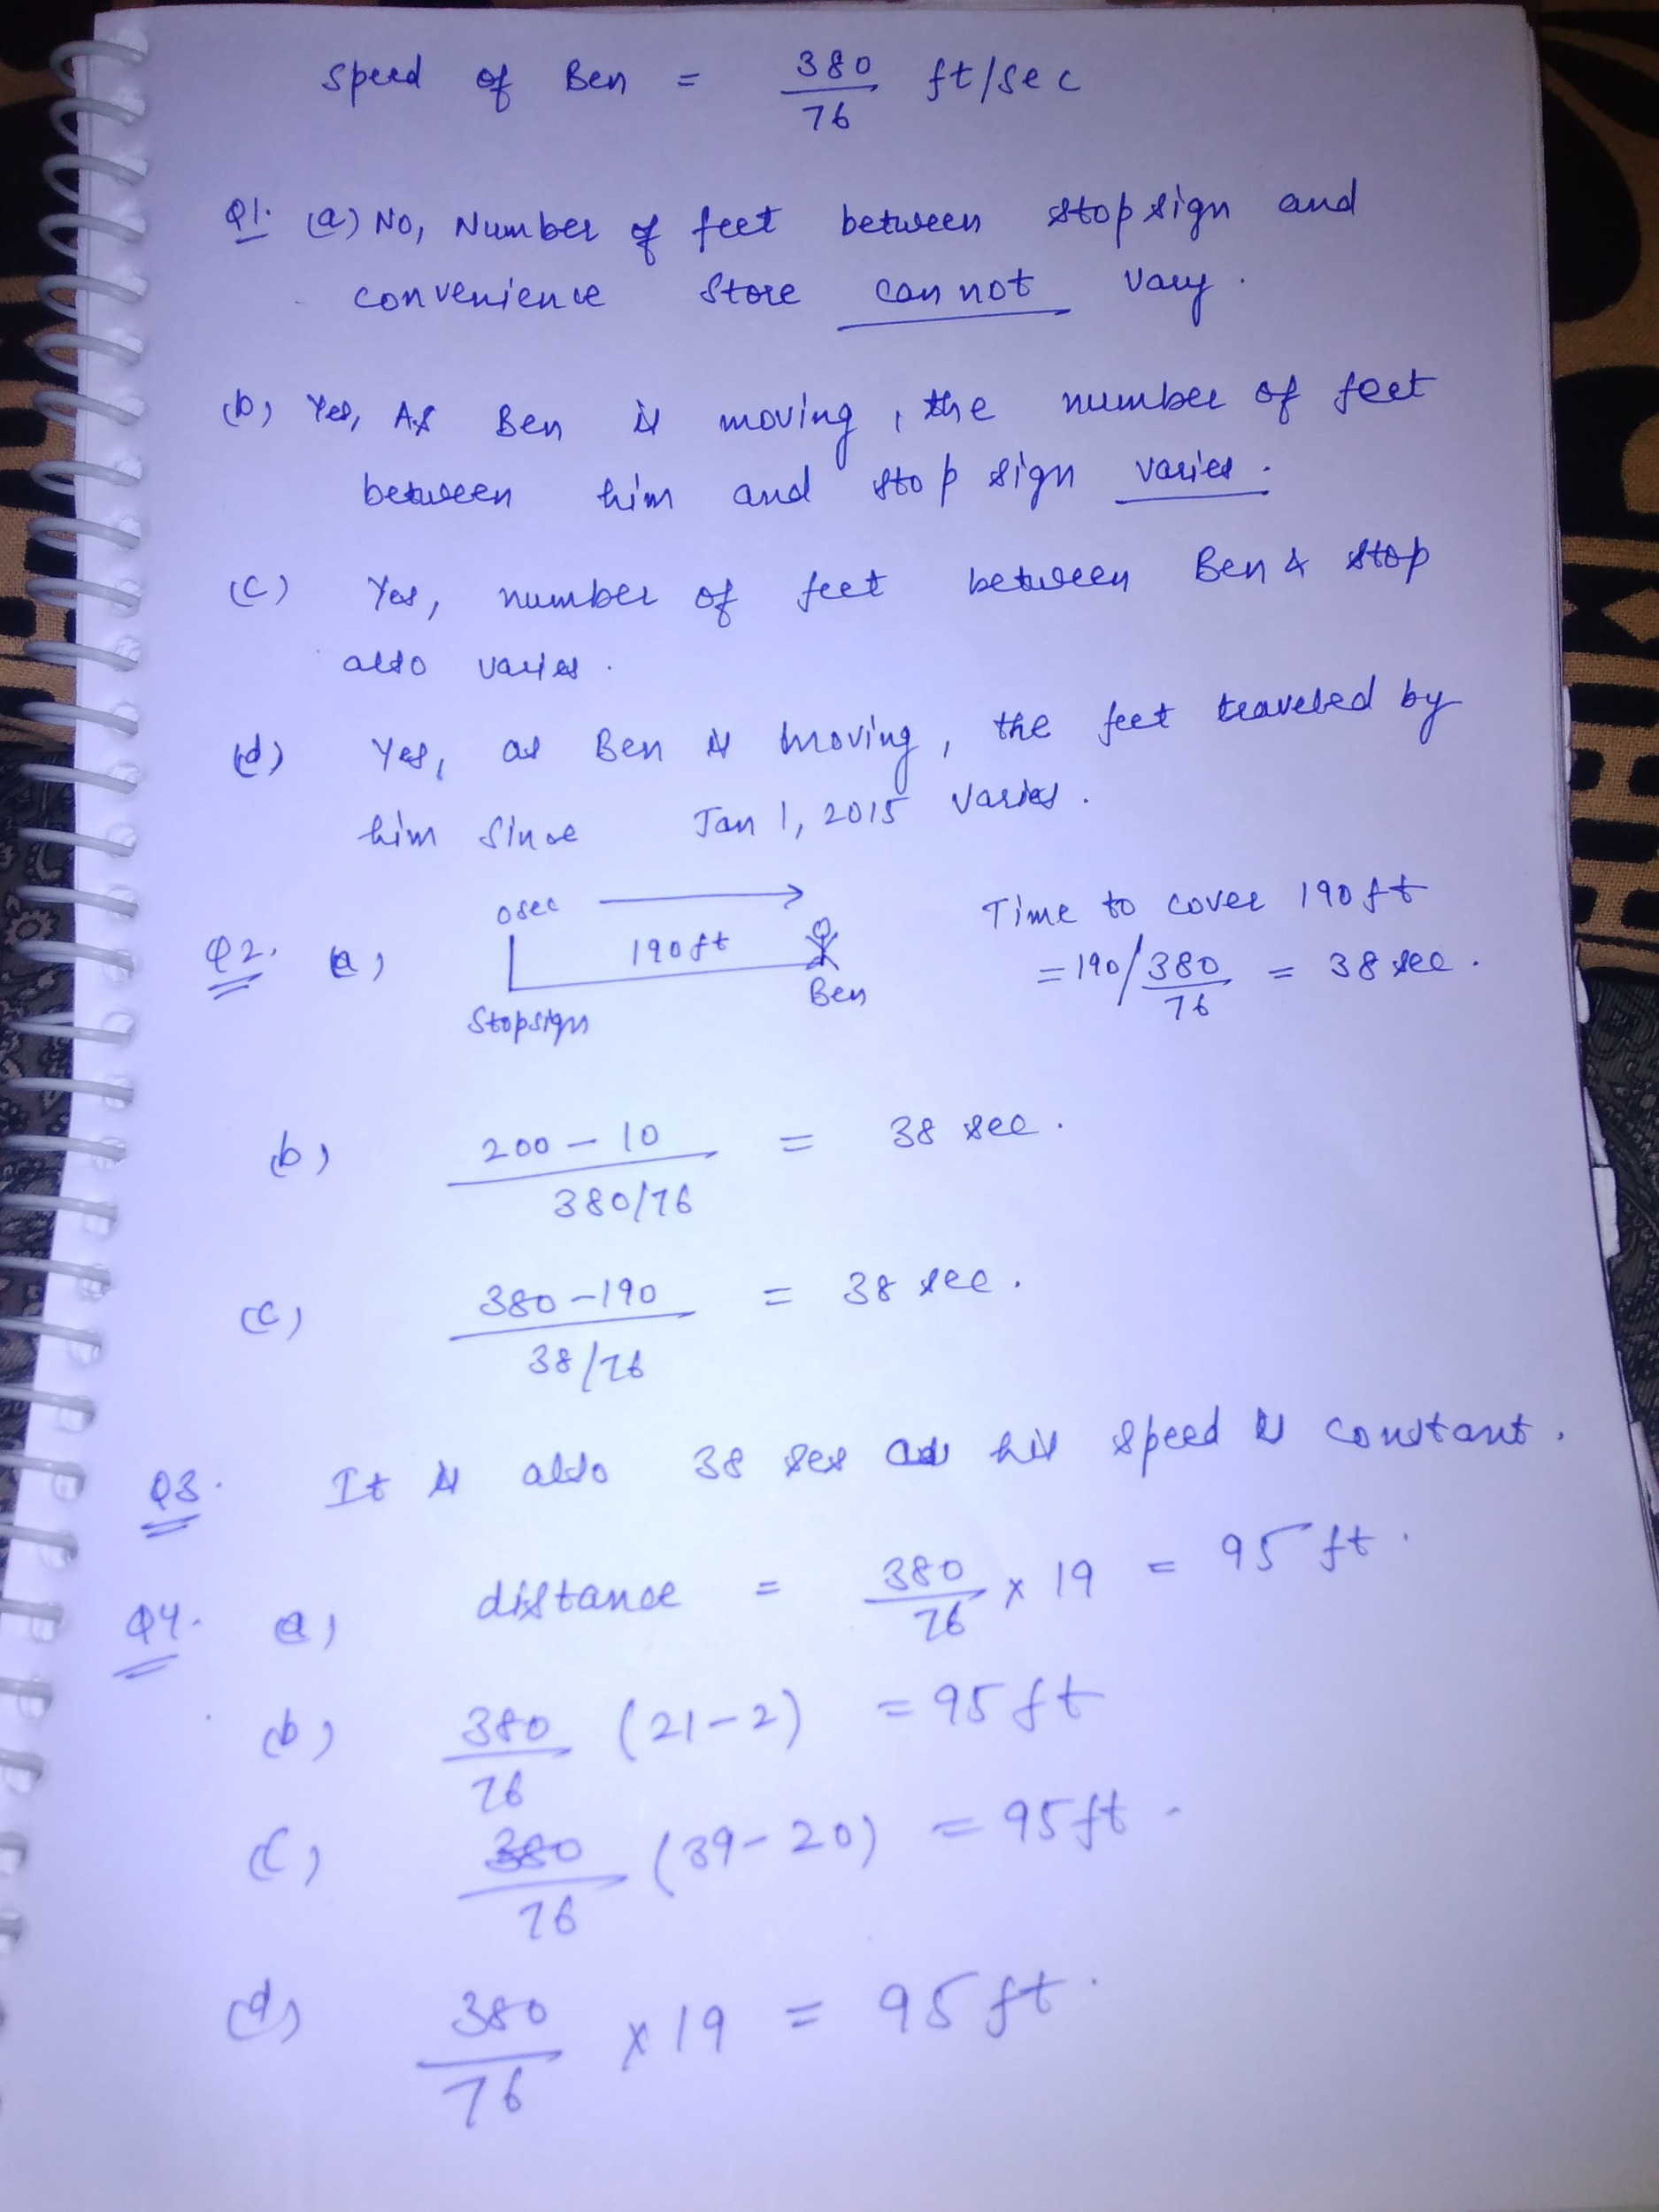 Speed of Ben = 380/76 ft/sec
Q1. (a) No, Number of feet between stop sign and
convenience store can not vary.
(b) Yes, As Ben is moving, the number of feet
between him and stop sign varies.
(c) Yes, number of feet between Ben & stop
also varies.
(d) Yes, as Ben is moving, the feet traveled by
him since Jan 1, 2015 varies.
Q2. a) 0 sec → 190 ft Stopsign Ben
Time to cover 190 ft
= 190/ 380/76 = 38 sec.
(b) 200 - 10 / 380/76 = 38 sec.
(c) 380 - 190 / 38/76 = 38 sec.
Q3. It is also 38 sec as his speed is constant.
Q4. a) distance = 380/76 x 19 = 95 ft.
(b) 380/76 (21-2) = 95 ft
(c) 380/76 (39-20) = 95 ft.
(d) 380/76 x 19 = 95 ft.